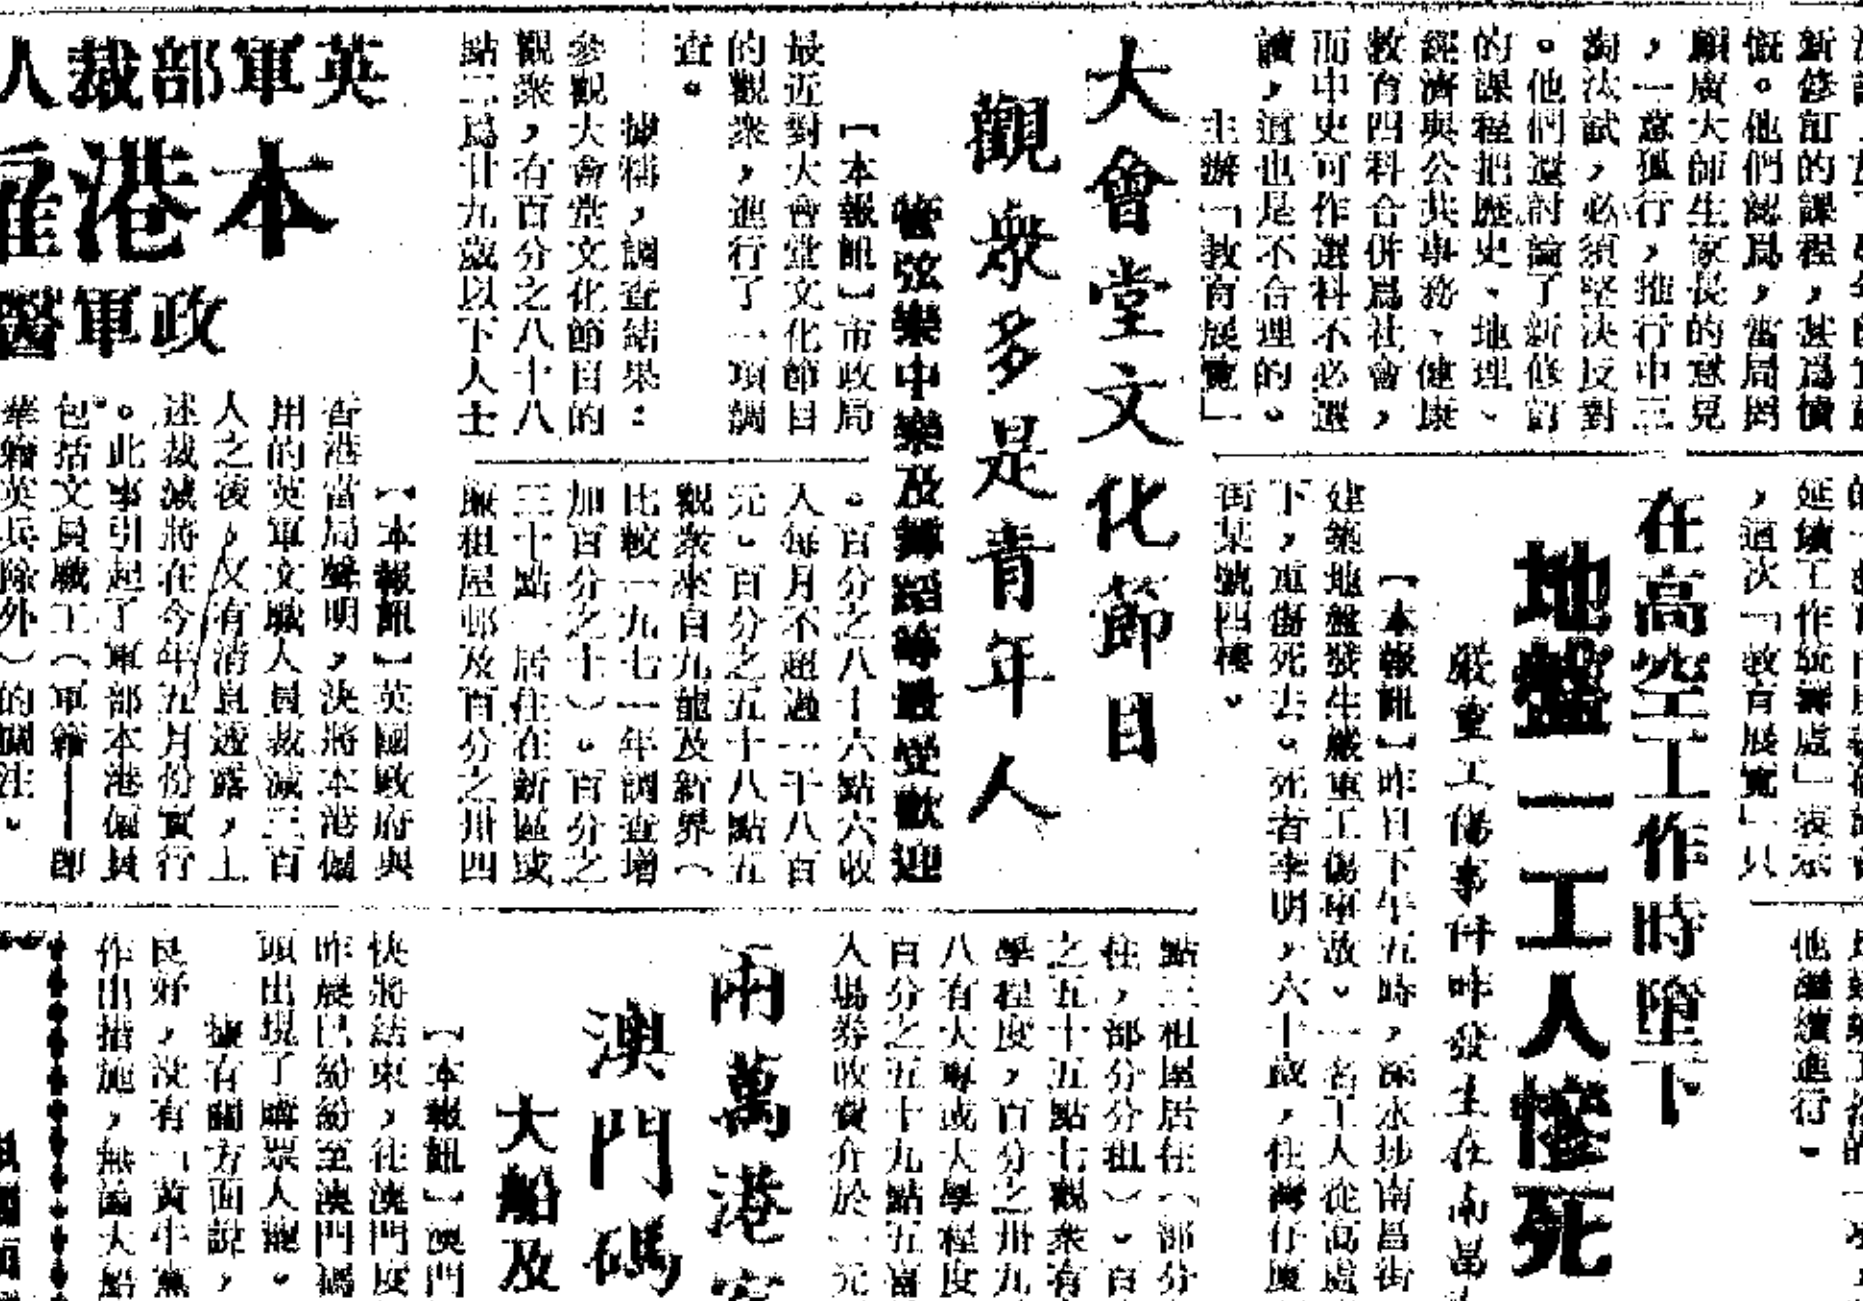 新修訂的課程，甚爲憤
慨。他們認爲，當局罔
顧廣大師生家長的意見
，一意孤行，推行中三
淘汰試，必須堅決反對
。他們還討論了新修訂
的課程把歷史、地理、
經濟與公共事務、健康
教育四科合併爲社會，
而中史可作選科不必選
讀，這也是不合理的。
主辦「教育展覽」
延續工作統籌處」表示
，這次「教育展覽」只
他繼續進行。
在高空工作時墮下
地盤一工人慘死
嚴重工傷事件昨發生在南昌
【本報訊】昨日下午五時，深水埗南昌街
建築地盤發生嚴重工傷事故。一名工人從高處
下，重傷死去。死者李明，六十歲，住灣仔廈
街某號四樓。
大會堂文化節目
觀衆多是青年人
管弦樂中樂及舞蹈等最受歡迎
【本報訊】市政局
最近對大會堂文化節目
的觀衆，進行了一項調
查。
據稱，調查結果：
參觀大會堂文化節目的
觀衆，有百分之八十八
點二爲廿九歲以下人士
。百分之八十六點六收
入每月不超過一千八百
元。百分之五十八點五
觀衆來自九龍及新界（
比較一九七一年調查增
加百分之十）。百分之
三十點一居住在新區或
廉租屋邨及百分之卅四
點三租屋居住（部分
住，部分分租）。百
之五十五點七觀衆有
學程度，百分之卅九
八有大專或大學程度
百分之五十九點五富
入場券收費介於一元
英軍部裁人
本港雇
政軍醫
【本報訊】英國政府與
香港當局聲明，決將本港僱
用的英軍文職人員裁減三百
人之後，又有消息透露，上
述裁減將在今年五月份實行
。此事引起了軍部本港僱員
包括文員職工（軍籍——即
華籍英兵除外）的關注。
兩萬港客
澳門碼
大船及
【本報訊】澳門
快將結束，往澳門度
昨晨已紛紛至澳門碼
頭出現了購票人龍。
據有關方面說，
良好，没有「黃牛黨
作出措施，無論大船